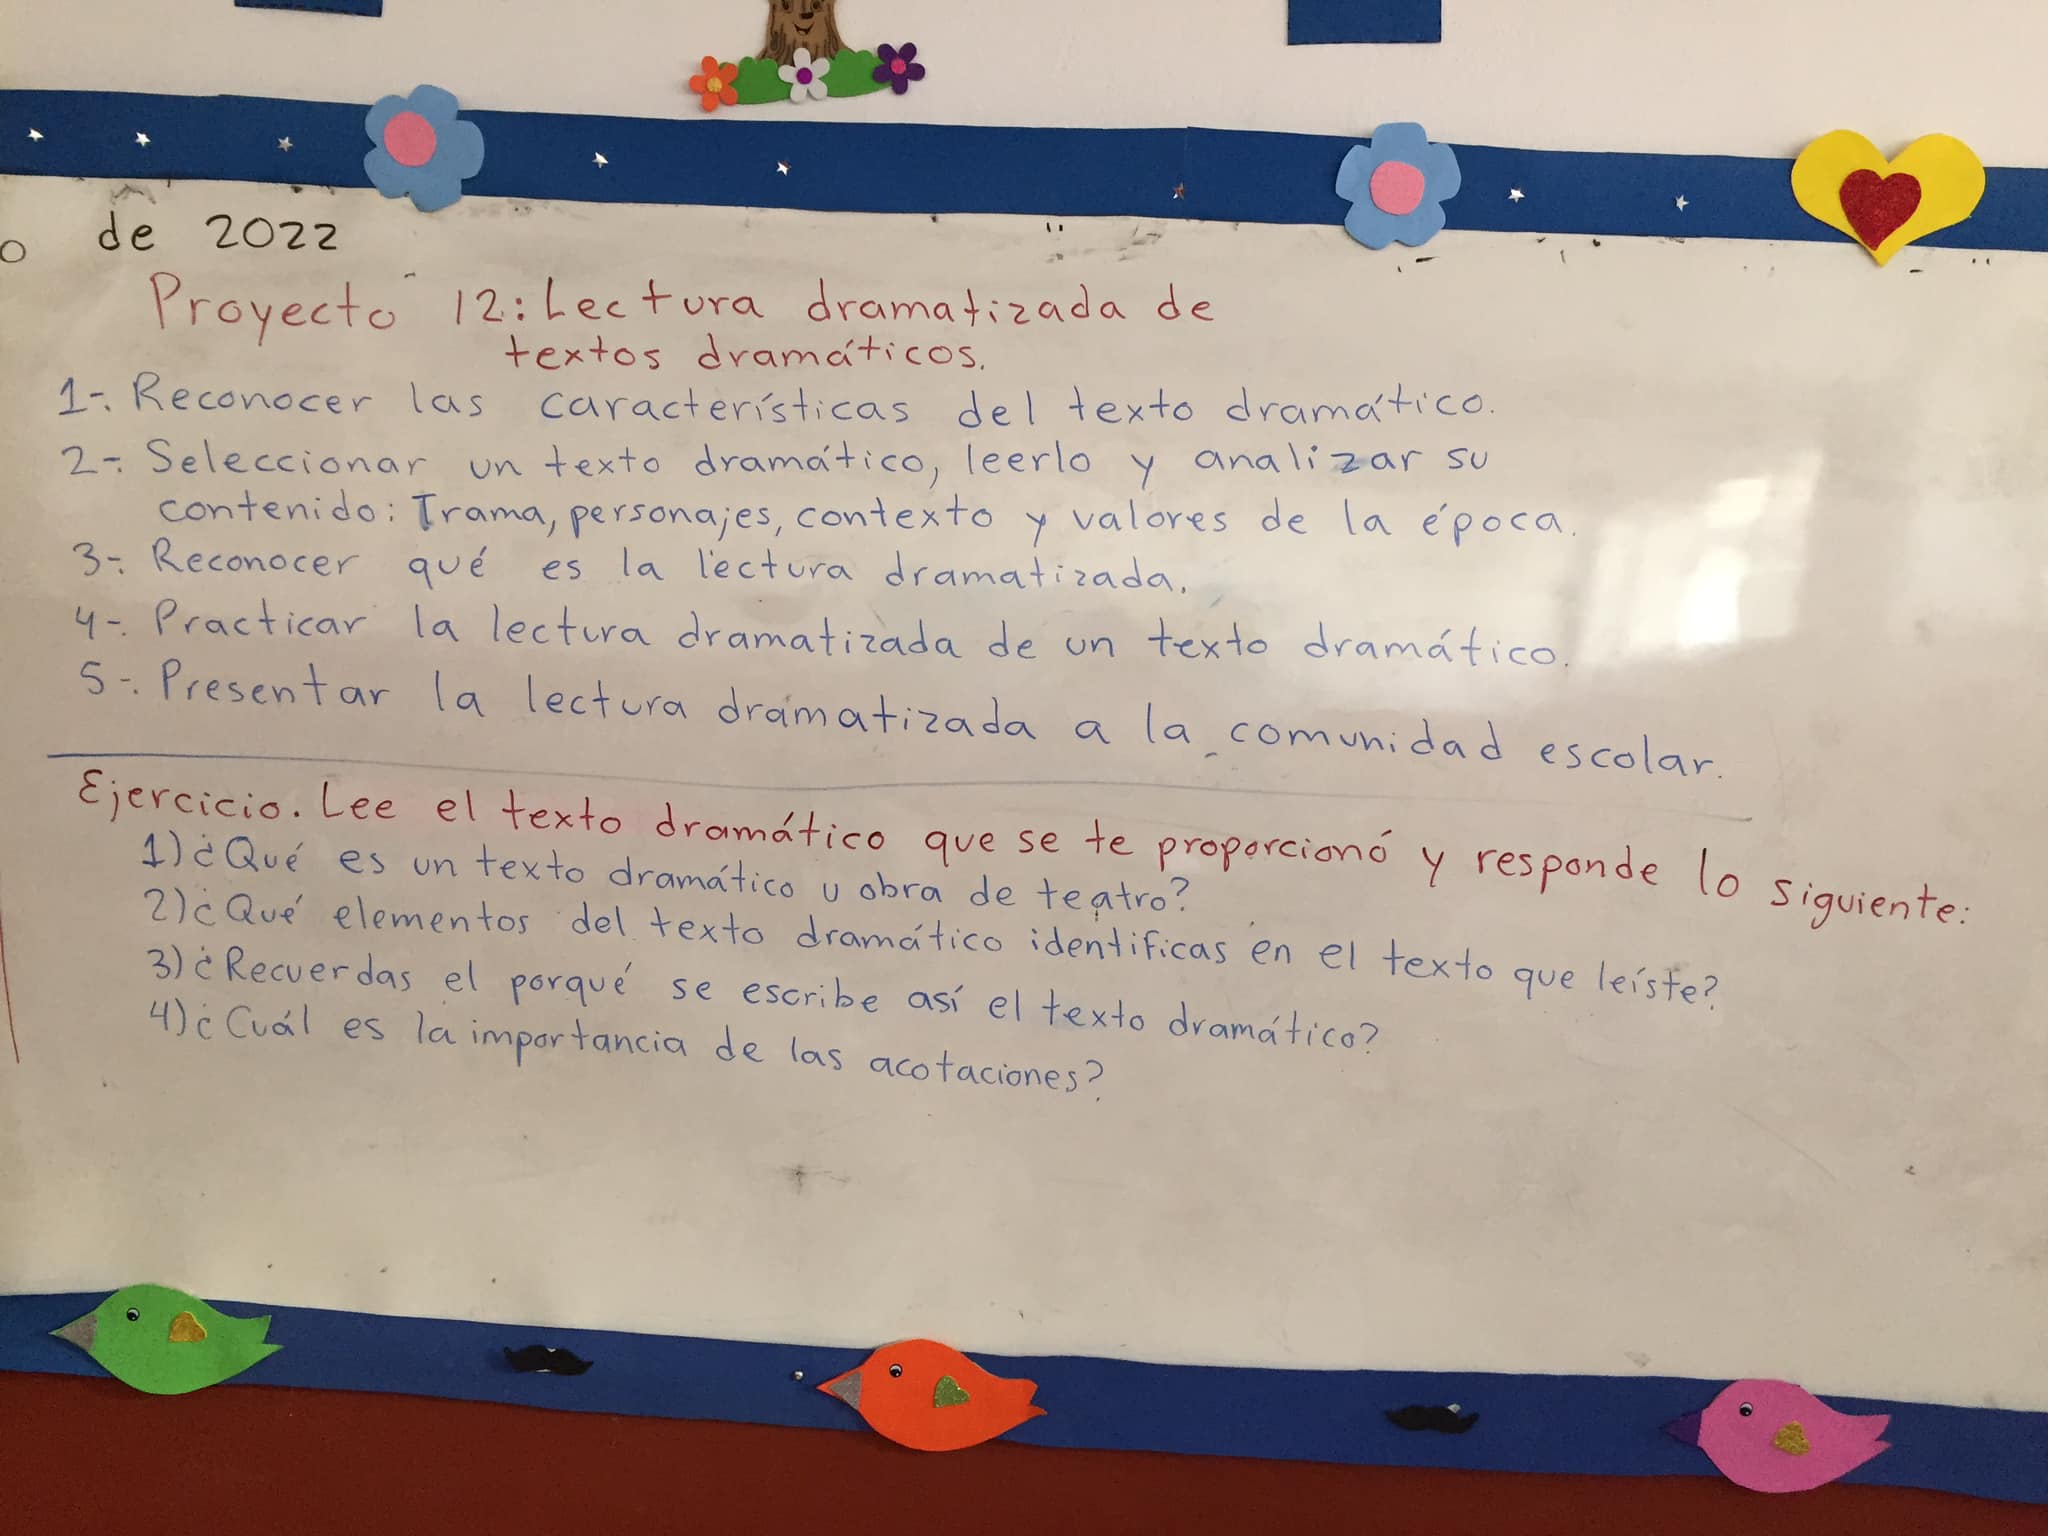 o de 2022
Proyecto 12: Lectura dramatizada de
textos dramáticos.
1-. Reconocer las características del texto dramático.
2-. Seleccionar un texto dramático, leerlo y analizar su
contenido: Trama, personajes, contexto y valores de la época.
3-. Reconocer qué es la lectura dramatizada.
4-. Practicar la lectura dramatizada de un texto dramático.
5-. Presentar la lectura dramatizada a la comunidad escolar.
Ejercicio. Lee el texto dramático que se te proporcionó y responde lo siguiente:
1) ¿Qué es un texto dramático u obra de teatro?
2) ¿Qué elementos del texto dramático identificas en el texto que leíste?
3) ¿Recuerdas el porqué se escribe así el texto dramático?
4) ¿Cuál es la importancia de las acotaciones?